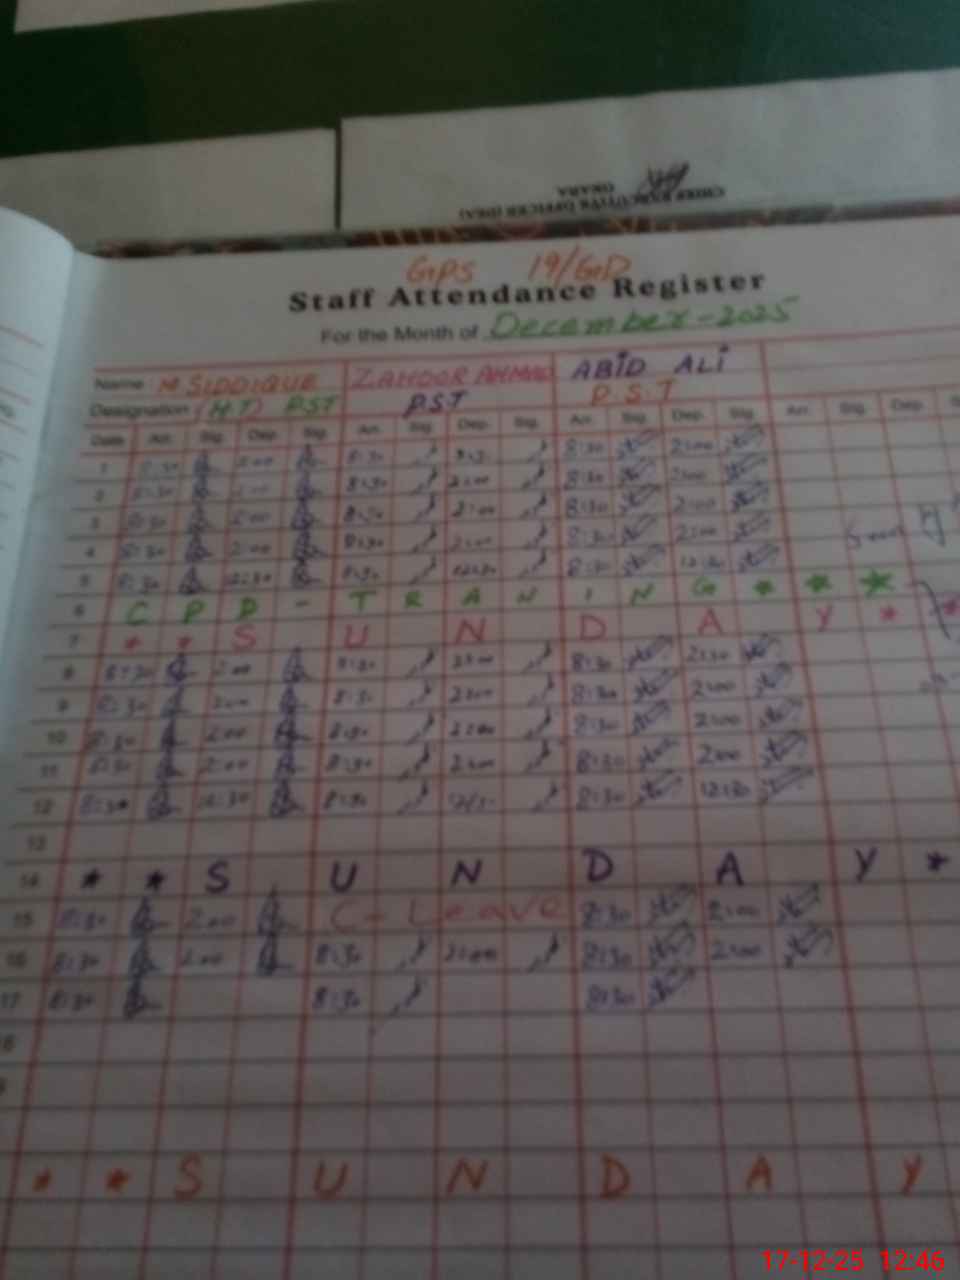 CHIEF EXECUTIVE OFFICER (DEA)
OKARA
GPS 19/GD
Staff Attendance Register
For the Month of December-2025
Name M SIDDIQUE ZAHOOR AHMAD ABID ALI
Designation (H.T) PST P.S.T P.S.T
Date Arr. Sig. Dep. Sig. Arr. Sig. Dep. Sig. Arr. Sig. Dep. Sig. Arr. Sig. Dep.
1 8:30 2:00 8:30 8:30 2:00
2 8:30 2:00 8:30 2:00 8:30 2:00
3 8:30 2:00 8:30 2:00 8:30 2:00
4 8:30 2:00 8:30 2:00 8:30 2:00
5 8:30 12:30 8:30 12:30 8:30 12:30
6 C P D - T R A N I N G * * *
7 * * S U N D A Y * *
8 8:30 2:00 8:30 2:00 8:30 2:00
9 8:30 2:00 8:30 2:00 8:30 2:00
10 8:30 2:00 8:30 2:00 8:30 2:00
11 8:30 2:00 8:30 2:00 8:30 2:00
12 8:30 12:30 8:30 8:30 12:30
13
14 * * S U N D A Y *
15 8:30 2:00 C- Leave 8:30 2:00
16 8:30 2:00 8:30 2:00 8:30 2:00
17 8:30 8:30 8:30
* * S U N D A Y
17-12-25 12:46